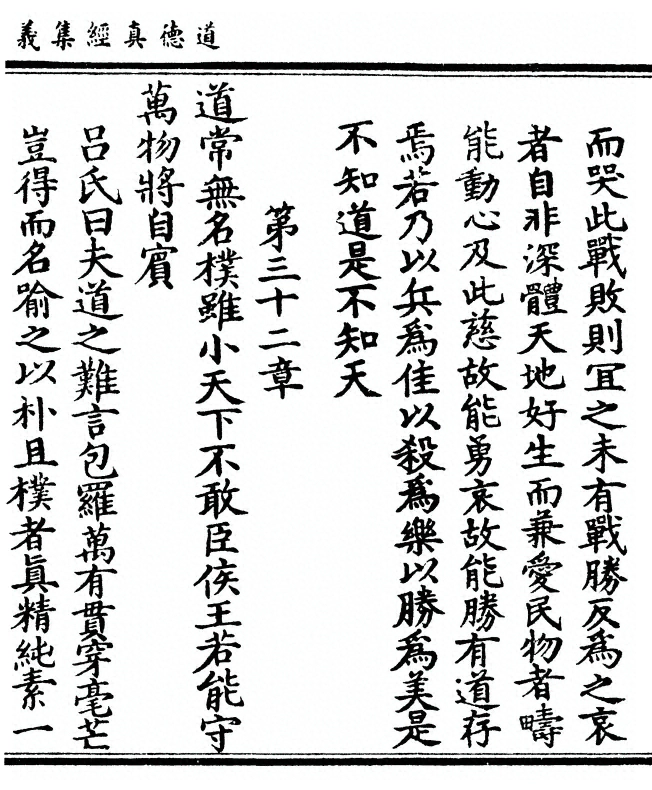 道德真經集義
而哭此戰敗則冝之未有戰勝反爲之哀
者自非深體天地好生而兼愛民物者疇
能動心及此慈故能勇哀故能勝有道存
焉若乃以兵爲佳以殺爲樂以勝爲美是
不知道是不知天
第三十二章
道常無名樸雖小天下不敢臣侯王若能守
萬物將自賓
呂氏曰夫道之難言包羅萬有貫穿毫芒
豈得而名喻之以朴且樸者眞精純素一